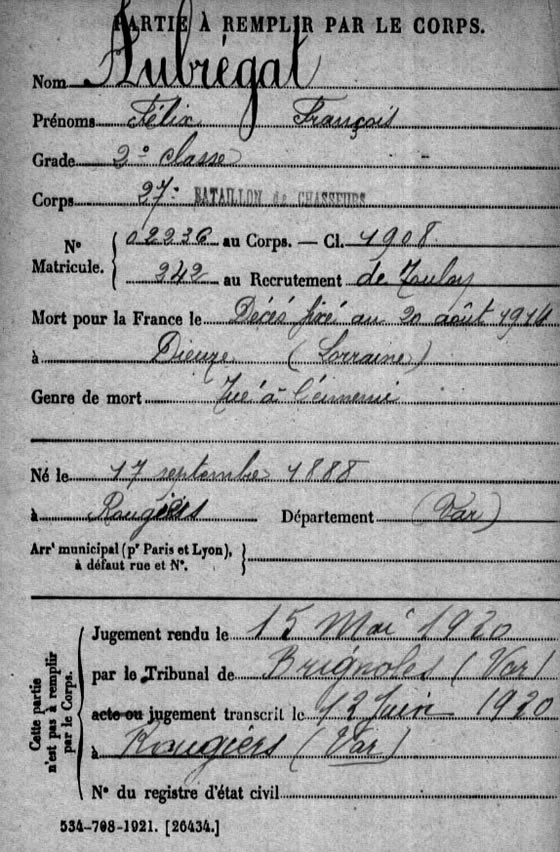 PARTIE À REMPLIR PAR LE CORPS.
Nom Aubrégat
Prénoms Félix François
Grade 2e classe
Corps 27e BATAILLON de CHASSEURS
N° Matricule. { 02236 au Corps. — Cl. 1908
242 au Recrutement de Toulon
Mort pour la France le Décès fixé au 20 août 1914
à Dieuze (Lorraine)
Genre de mort Tué à l'ennemi
Né le 17 septembre 1888
à Rougiers Département (Var)
Arrt municipal (pr Paris et Lyon), à défaut rue et N°. }
Cette partie n'est pas à remplir par le Corps.
Jugement rendu le 15 Mai 1920
par le Tribunal de Brignoles (Var)
acte ou jugement transcrit le 12 Juin 1920
à Rougiers (Var)
N° du registre d'état civil
534-708-1921. [26434.]